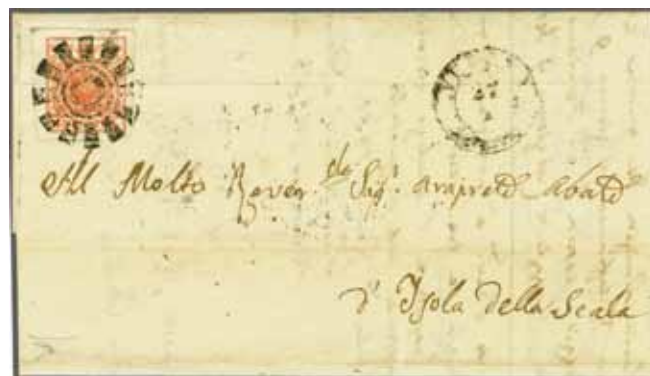 Al Molto Rever.do Sig.r arciprete abate
d'Isola della Scala